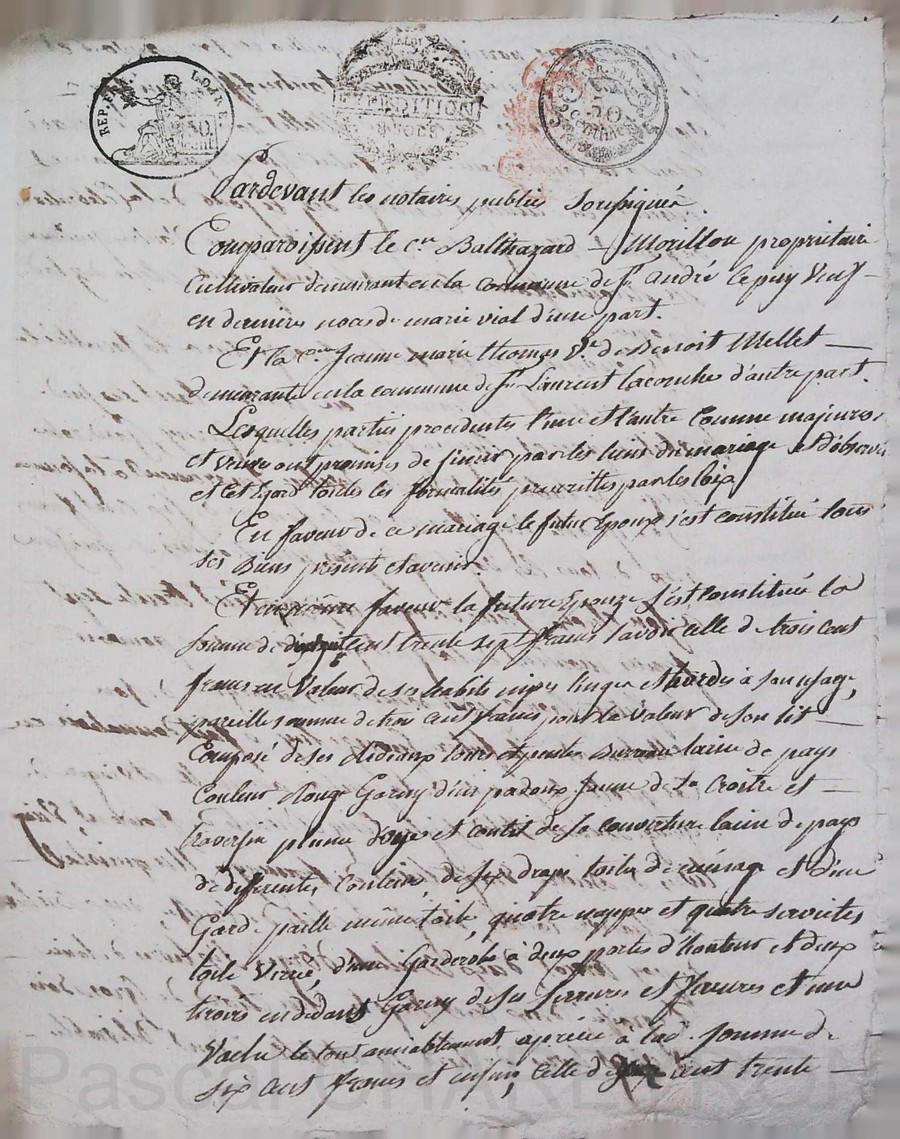 REP. FRA.
50
cent
EXPEDITION
50
centimes
Pardevant les notaires publics Soussignés
Comparoissent le Cen Balthazard Morillon propriétaire
Cultivateur demeurant en la Commune de St André Lepuy Veuf
en dernieres noces de marie vial d'une part.
Et la Cenne Jeanne marie thomas Ve de Benoit Mellet
demeurante en la commune de St Laurent Laconche d'autre part.
Lesquelles parties procedentes l'une et l'autre Comme majeures
et veuve ont promises de s'unir par les liens du mariage et d'observer
et cet egard toutes les formalités prescrittes par les loix
En faveur de ce mariage le futur Epoux s'est constitué tous
ses Biens présents et avenir.
Et en même faveur la future Epouze s'est Constituée la
Somme de cent trente sept francs savoir celle de trois cent
francs en Valeur de ses habits nipes linges et hardes à son usage,
pareille somme de trois cent francs pour la Valeur de son lit
Composé de ses Rideaux tours et pentes Bureau laine de pays
Couleur Rouge Garny d'un padoux Jaune de sa Croitre et
traversin plume d'oye et coutil de sa couverture laine de pays
de differentes Couleurs, de six draps toile de ménage et d'une
Garde paille même toile, quatre nappes et quatre serviettes
toile d'une Garderobe à deux portes d'hauteur et deux
tiroirs en dedans Garny de ses serrures et ferures et une
Vache le tout amiablement apréciée à lad. somme de
six cent francs et enfin, celle de cent trente
Pascal CHARBITRON